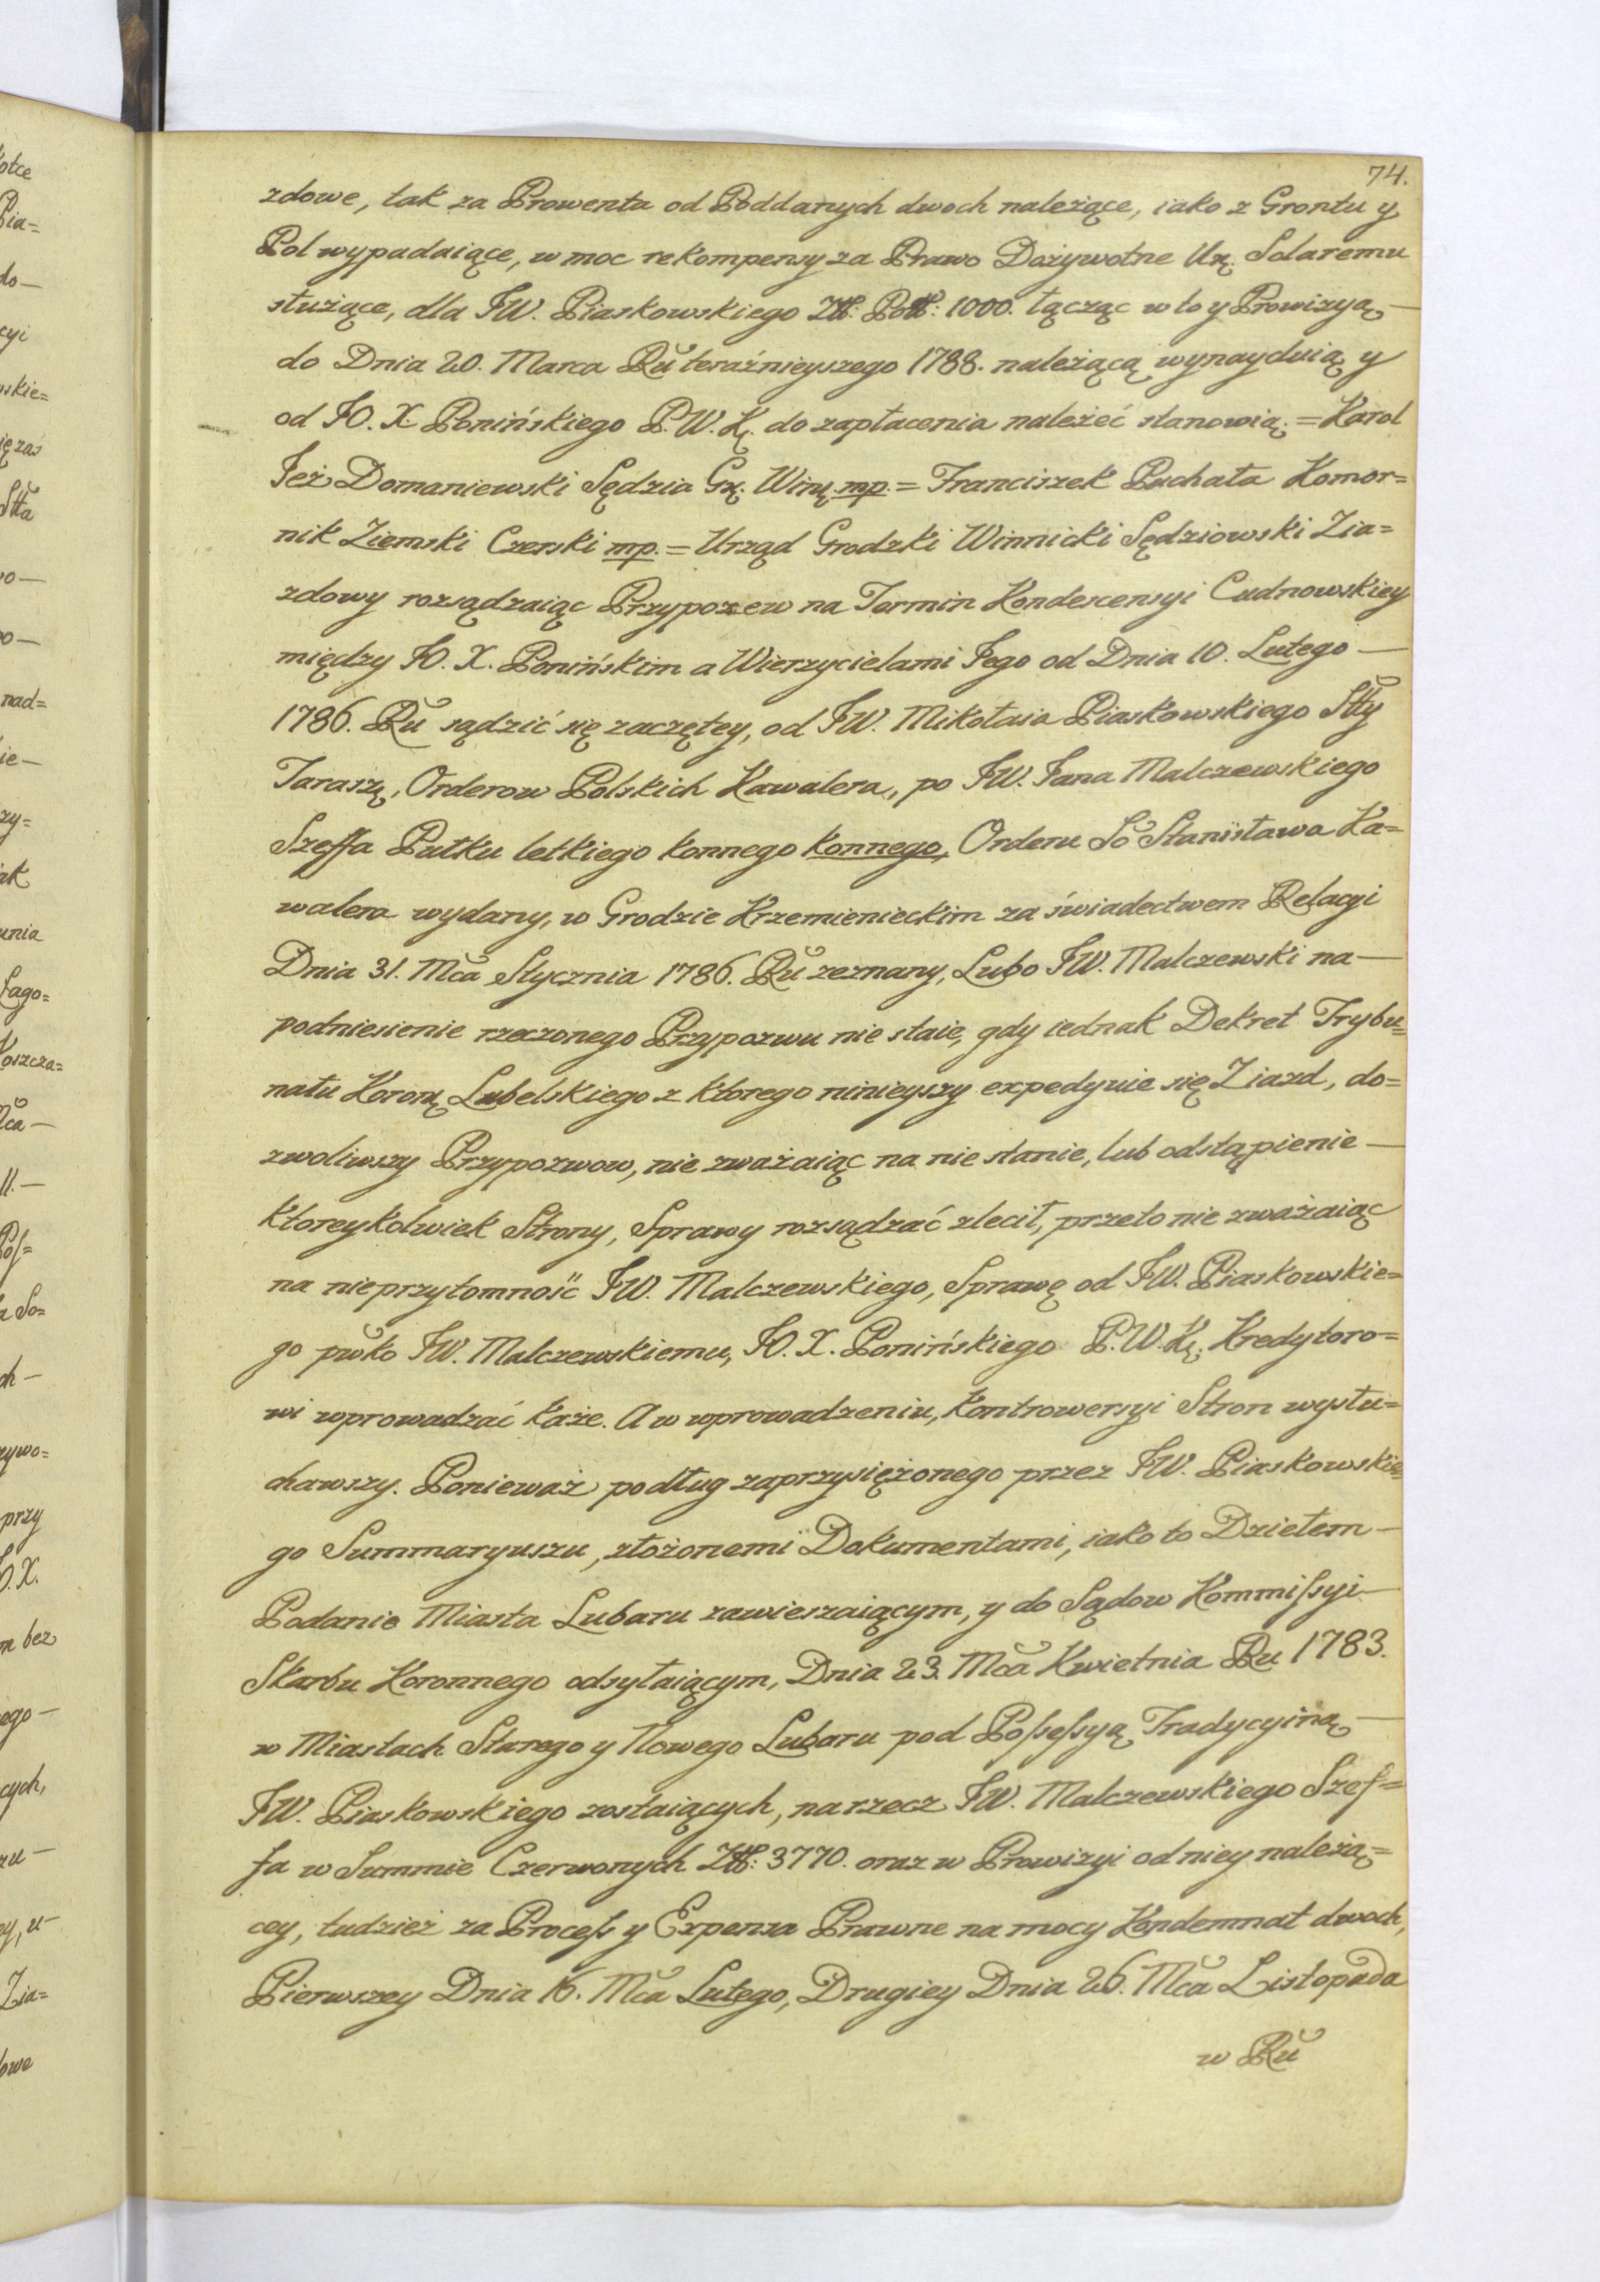 74.
zdowe, tak za Prowenta od Poddanych dwoch należące, iako z Grontu y
Pol wypadaiące, w moc rekompensy za Prawo Dożywotne Ur. Solaremu
służące, dla JW. Piaskowskiego Złł: Poll: 1000. łącząc w to y Prowizyą —
do Dnia 20. Marca Ru teraźnieyszego 1788. należącą wynayduią y
od JO. X. Ponińskiego P.W.K. do zapłacenia należeć stanowią. = Karol
Jeż Domaniewski Sędzia Gr. Winn. mp. = Franciszek Puchała Komor=
nik Ziemski Czerski mp. = Urząd Grodzki Winnicki Sędziowski Zia=
zdowy rozsądzaiąc Przypozew na Termin Kondescensyi Cudnowskiey
między JO. X. Ponińskim a Wierzycielami Jego od Dnia 10. Lutego —
1786. Ru sądzić się zaczętey, od JW. Mikołaia Piaskowskiego Stty
Tarasz, Orderow Polskich Kawalera, po JW. Jana Malczewskiego
Szeffa Pułku letkiego konnego konnego, Orderu So Stanisława Ka=
walera wydany, w Grodzie Krzemienieckim za świadectwem Relacyi
Dnia 31. Mca Stycznia 1786. Ru zeznany, Lubo JW. Malczewski na —
podniesienie rzeczonego Przypozwu nie staie, gdy iednak Dekret Trybu=
nału Koron Lubelskiego z ktorego ninieyszy expedyuie się Ziazd, do=
zwoliwszy Przypozwow, nie zważaiąc na nie stanie, lub odstąpienie —
ktoreykolwiek Strony, Sprawy rozsądzać zlecił, przeto nie zważaiąc
na nieprzytomność JW. Malczewskiego, Sprawę od JW. Piaskowskie=
go pwko JW. Malczewskiemu, JO. X. Ponińskiego P.W.K. Kredytoro=
wi wprowadzać każe. A w wprowadzeniu, Kontrowersyi Stron wysłu=
chawszy. Ponieważ podług zaprzysiężonego przez JW. Piaskowskie=
go Summaryuszu, złożonemi Dokumentami, iako to Dziełem —
Podanie Miasta Lubaru zawieszaiącym, y do Sądow Kommissyi —
Skarbu Koronnego odsyłaiącym, Dnia 23. Mca Kwietnia Ru 1783.
w Miastach Starego y Nowego Lubaru pod Possessyą Tradycyiną —
JW. Piaskowskiego zostaiących, na rzecz JW. Malczewskiego Szef=
fa w Summie Czerwonych Złł: 3770. oraz w Prowizyi od niey należą=
cey, tudzież za Process y Expensa Prawne na mocy Kondemnat dwoch,
Pierwszey Dnia 16. Mca Lutego, Drugiey Dnia 26. Mca Listopada
w Ru